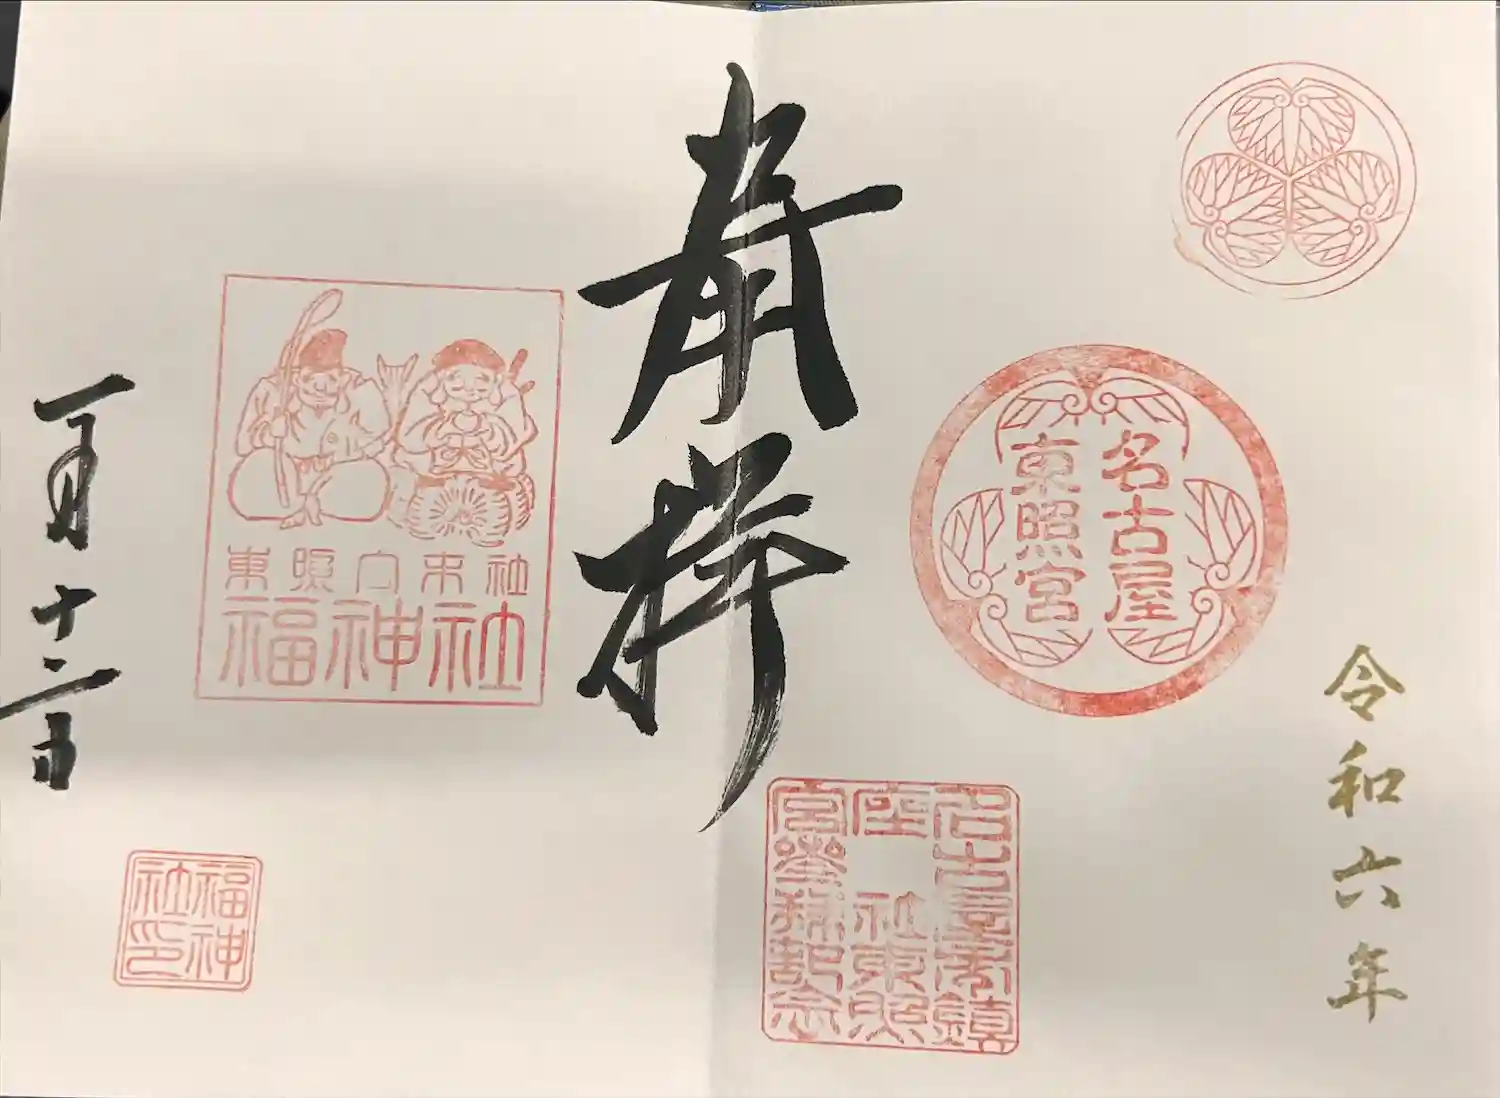 令和六年
名古屋
東照宮
名古屋鎮
座 社東照
宮参拝記念
奉拝
東照宮末社
福神社
一月十二日
福神
社印